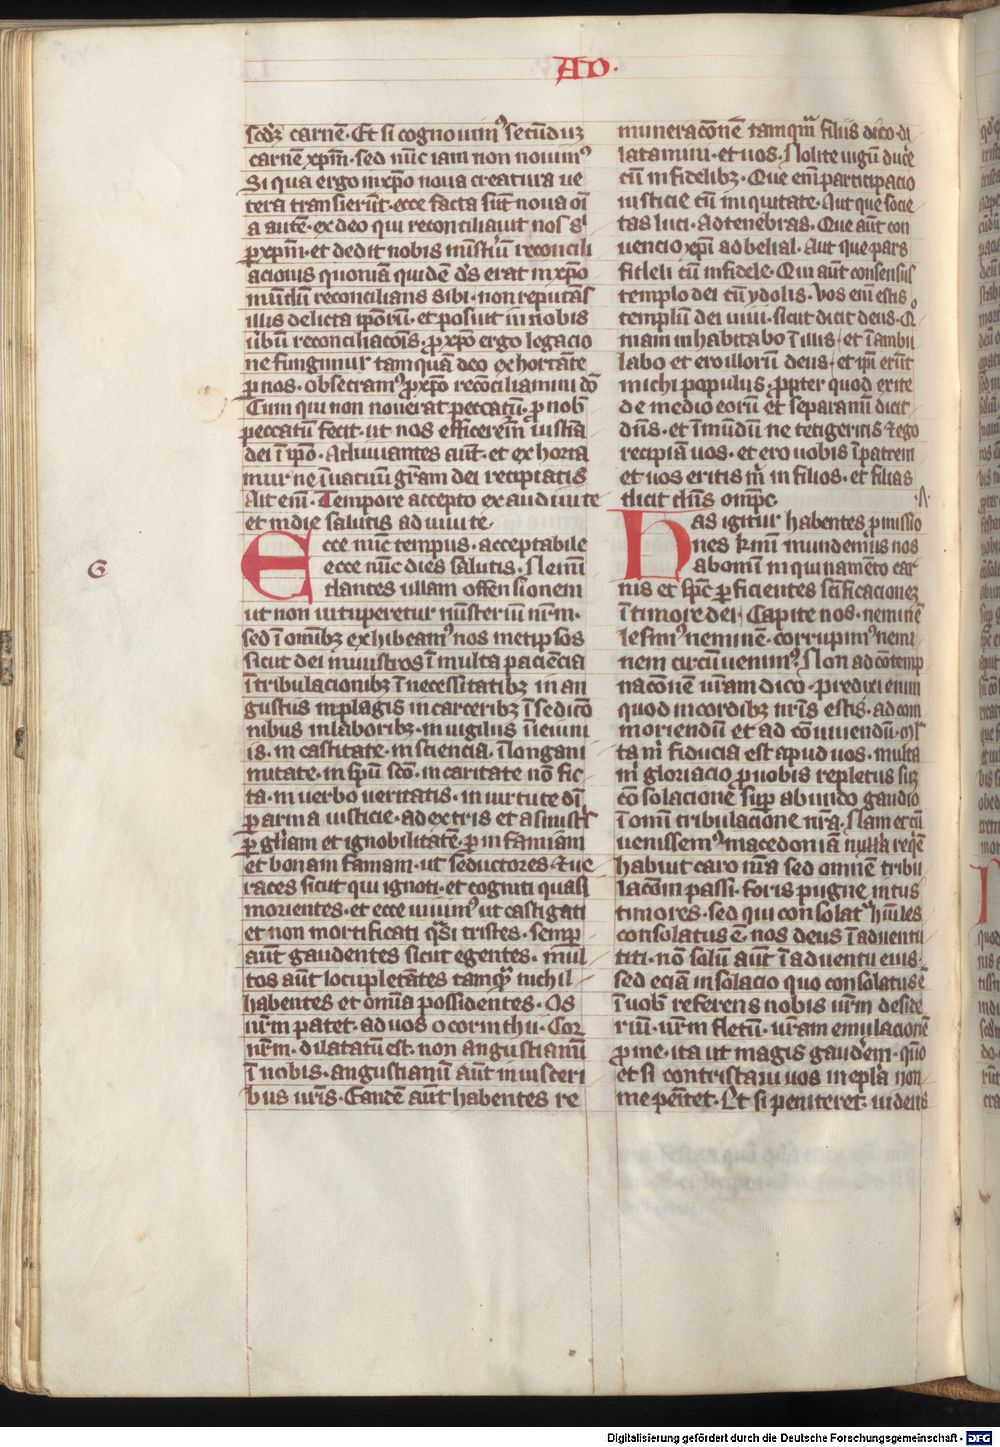 AD.
scd'z carnē. Et si cognouim⁹ secūduz
carnē xp̄m. sed nūc iam non nouim⁹
Si qua ergo in xp̄o noua creatura ue
tera transierūt. ecce facta sūt noua oī
a autē. ex deo qui reconciliauit nos sⁱ
ꝑ xp̄m. et dedit nobis mīst'iū reconcili
acionis quoniā quidē d̄s erat in xp̄o
mūdū reconcilians sibi. non reputās
illis delicta ip̄orū. et posuit in nobis
ūbū reconciliacōis. ꝓ xp̄o ergo legacio
ne fungimur tamquā deo exhortāte
ꝑ nos. obsecram⁹ ꝓ xp̄o recōciliamini dō
Eum qui non nouerat peccatū. ꝓ nob̄
peccatū fecit. ut nos efficerem̄ iusticia
dei ī ip̄o. Adiuuantes aūt. et exhorta
mur ne īuacuū grām dei recipiatis
Ait em̄. Tempore accepto exaudiui te
et in die salutis adiuui te.
Ecce nūc tempus. acceptabile
ecce nūc dies salutis. Nemī
dantes ullam offensionem
G
ut non uituperetur mīsteriū nr̄m.
sed ī om̄ibꝫ exhibeam⁹ nos metipsos
sicut dei ministros ī multa paciēcia
ī tribulacionibꝫ ī necessitatibꝫ in an
gustiis in plagis in carceribꝫ ī sedicō
nibus in laboribꝫ. in uigiliis ī ieiuni
is. in castitate. in sciencia. ī longani
mitate. in sp̄u scō. in caritate nō fic
ta. in uerbo ueritatis. in uirtute dī
ꝑ arma iusticie. a dextris et a sinistr̄
ꝑ gl̄iam et ignobilitatē. ꝑ infamiam
et bonam famam. ut seductores. ⁊ ue
races sicut qui ignoti. et cogniti quasi
morientes. et ecce uiuim⁹ ut castigati
et non mortificati q̄si tristes. semp̄
aūt gaudentes sicut egentes. mul
tos aūt locupletātes tamqᵃ nichil
habentes et om̄ia possidentes. Os
nr̄m patet. ad uos o corinthii. Cor
nr̄m. dilatatū est. non angustiamī
ī nobis. angustiamī aūt in uisceri
bus ur̄is. Eandē aūt habentes re
muneracōnē tamquā filiis dico. di
latamini. et uos. Nolite iugū ducē
cū infidelibꝫ. Que em̄ participacio
iusticie cū iniquitate. Aut que socie
tas luci. Ad tenebras. Que aūt con
uencio xp̄i ad belial. Aut que pars
fideli cū infidele. Qui aūt consensus
templo dei cū ydolis. Vos em̄ estis
templū dei uiui. sicut dicit deus. Qᵒ
niam inhabitabo ī illis. et ī ambu
labo et ero illorū deus. et ip̄i erūt
michi populus. ꝓpter quod exite
de medio eorū et separamī dicit
dn̄s. et īmūdū ne tetigeritis ⁊ ego
recipiā uos. et ero uobis ī patrem
et uos eritis m̄ in filios. et filias
dicit dn̄s om̄pc̄
Has igitur habentes ꝓmissio
nes kmī mundemus nos
ab omī inquinamēto car
nis et sp̄c ꝑficientes sc̄ificacionez
ī timore dei. Capite nos. neminē
lesim⁹ neminē. corrupim⁹ nemi
nem circūuenim⁹. Non ad cōtemp
nacōnē ur̄am dico. Predixi enim
quod in cordibꝫ nr̄is estis. ad com
moriendū et ad cōuiuendū. ml̄
ta m̄ fiducia est apud uos. multa
m̄ gloriacio ꝓ uobis repletus suꝫ
cōsolacionē sup̄ abundo gaudio
ī omī tribulacione nr̄a. Nam et cū
uenissem⁹ macedoniā nulla reqē
habuit caro nr̄a sed omnē tribu
lacōm passi. foris pugne intus
timores. sed qui consolatᵣ hūiles
consolatus ē. nos deus ī aduentu
titi. nō solū aūt ī aduentu eius.
sed eciā in solacio quo consolatus ē
ī uob̄ referens nobis ur̄m deside
riū. ur̄m fletū. ur̄am emulacionē
ꝓ me. ita ut magis gaudem. qm̄o
et si contristaui uos in epl̄a non
me penitet. Et si peniteret. uidens
Digitalisierung gefördert durch die Deutsche Forschungsgemeinschaft - DFG